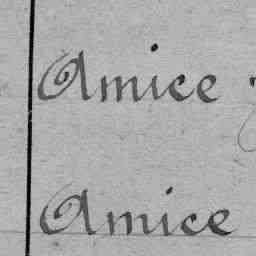 Amice
Amice